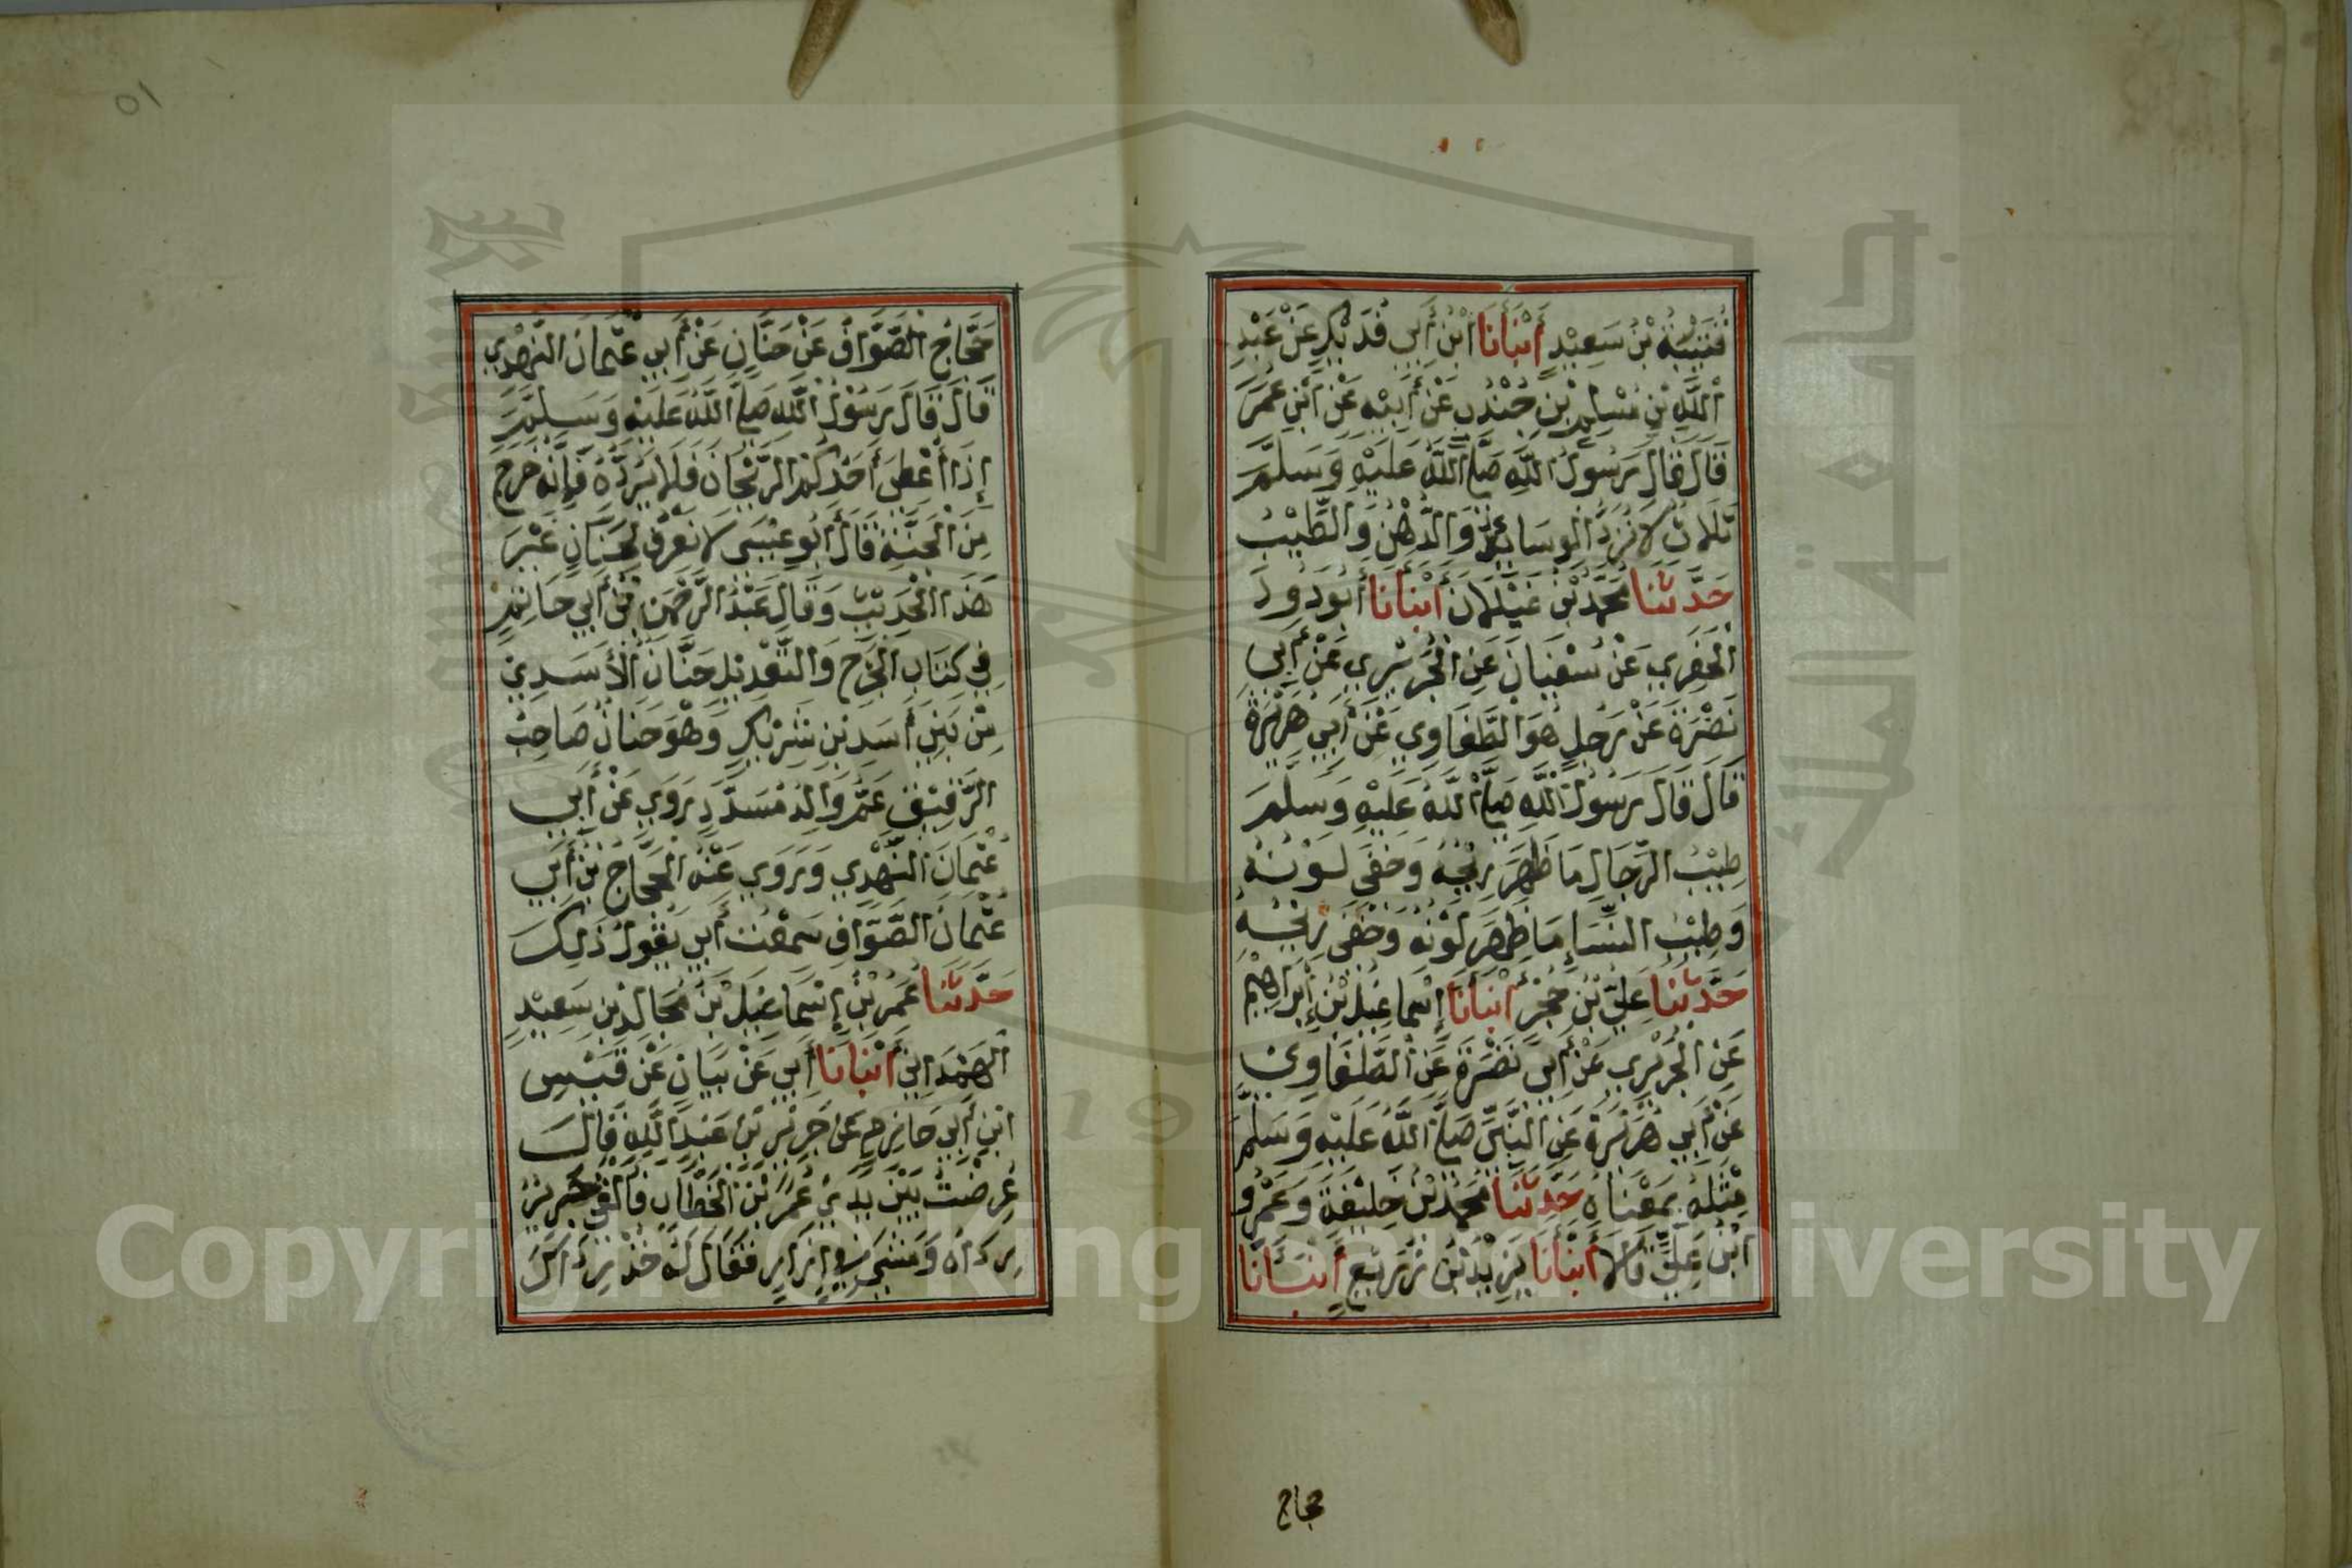 قُتَيْبَةُ بْنُ سَعِيْدٍ أَنْبَأَنَا ابْنُ أَبِي فُدَيْكٍ عَنْ عَبْدِ
اللَّهِ بْنِ مُسْلِمِ بْنِ جُنْدُبٍ عَنْ أَبِيْهِ عَنْ ابْنِ عُمَرَ
قَالَ قَالَ رَسُولُ اللَّهِ صَلَّى اللَّهُ عَلَيْهِ وَسَلَّمَ
ثَلَاثٌ لَا تُرَدُّ الْوَسَائِدُ وَالدُّهْنُ وَالطِّيْبُ
حَدَّثَنَا مَحْمُدُ بْنُ غَيْلَانَ أَنْبَأَنَا أَبُو دَاوُدَ
الْحَفَرِي عَنْ سُفْيَانَ عَنِ الْجُرَيْرِي عَنْ أَبِي
نَضْرَةَ عَنْ رَجُلٍ هُوَ الطُّفَاوِي عَنْ أَبِي هُرَيْرَةَ
قَالَ قَالَ رَسُولُ اللَّهِ صَلَّى اللَّهُ عَلَيْهِ وَسَلَّمَ
طِيْبُ الرِّجَالِ مَا ظَهَرَ رِيْحُهُ وَخَفِيَ لَوْنُهُ
وَطِيْبُ النِّسَاءِ مَا ظَهَرَ لَوْنُهُ وَخَفِيَ رِيْحُهُ
حَدَّثَنَا عَلِيُّ بْنُ حُجْرٍ أَنْبَأَنَا إِسْمَاعِيْلُ بْنُ إِبْرَاهِيْمَ
عَنِ الْجُرَيْرِي عَنْ أَبِي نَضْرَةَ عَنِ الطُّفَاوِي
عَنْ أَبِي هُرَيْرَةَ عَنِ النَّبِيِّ صَلَّى اللَّهُ عَلَيْهِ وَسَلَّمَ
مِثْلَهُ بِمَعْنَاهُ حَدَّثَنَا مُحَمَّدُ بْنُ خَلِيْفَةَ وَعَمْرُو
ابْنُ عَلِيٍّ قَالَا أَنْبَأَنَا يَزِيْدُ بْنُ زُرَيْعٍ أَنْبَأَنَا
حجاج
٥١
حَجَّاجُ الصَّوَّافُ عَنْ حَنَّانٍ عَنْ أَبِي عُثْمَانَ النَّهْدِي
قَالَ قَالَ رَسُوْلُ اللَّهِ صَلَّى اللَّهُ عَلَيْهِ وَسَلَّمَ
إِذَا أُعْطِيَ أَحَدُكُمُ الرَّيْحَانَ فَلَا يَرُدَّهُ فَإِنَّهُ خَرَجَ
مِنَ الْجَنَّةِ قَالَ أَبُو عِيْسَى لَا نَعْرِفُ لِحَنَانٍ غَيْرَ
هَذَا الْحَدِيْثِ وَقَالَ عَبْدُ الرَّحْمَنِ بْنُ أَبِي حَاتِمٍ
فِي كِتَابِ الْجَرْحِ وَالتَّعْدِيْلِ حَنَّانُ الْأَسَدِيُ
مِنْ بَنِي أَسَدِ بْنِ شَرِيْكٍ وَهُوَ حَنَانٌ صَاحِبُ
الرَّقِيْقِ عَمُّ وَالِدِ مُسَدَّدٍ رَوَي عَنْ أَبِي
عُثْمَانَ النَّهْدِي وَرَوَي عَنْهُ الْحَجَّاجُ بْنُ أَبِي
عُثْمَانَ الصَّوَّافِ سَمِعْتُ أَبِي يَقُولُ ذَلِكَ
حَدَّثَنَا عُمَرُ بْنُ إِسْمَاعِيْلَ بْنِ مُجَالِدِ بْنِ سَعِيْدٍ
الْهَمْدَانِيُ أَنْبَأَنَا أَبِي عَنْ بَيَانٍ عَنْ قَيْسِ
ابْنِ أَبِي حَازِمٍ عَنْ جَرِيْرِ بْنِ عَبْدِ اللَّهِ قَالَ
عُرِضْتُ بَيْنَ يَدَيْ عُمَرَ بْنِ الْخَطَّابِ فَأَلْقَى جَرِيْرٌ
رِدَاهُ وَمَشَى فِي إِزَارٍ فَقَالَ لَهُ خُذْ رِدَاكَ
Copyright © King Saud University